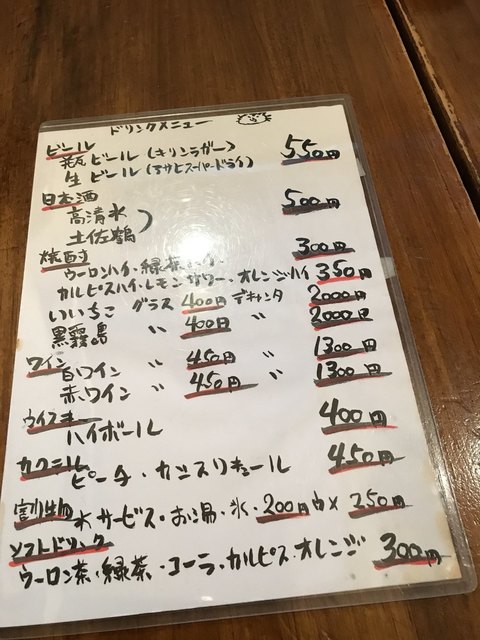 ドリンクメニュー
ビール
瓶ビール(キリンラガー) 550円
生ビール(アサヒスーパードライ)
日本酒
高清水 500円
土佐鶴
焼酎 300円
ウーロンハイ・緑茶
カルピスハイ・レモンサワー・オレンジハイ 350円
いいちこ グラス 400円 デキャンタ 2000円
黒霧島 〃 400円 〃 2000円
ワイン
白ワイン 〃 450円 〃 1300円
赤ワイン 〃 450円 〃 1300円
ウイスキー
ハイボール 400円
カクテル
ピーチ・カシスリキュール 450円
割り物
水サービス・お湯・氷・200円 ウメ 250円
ソフトドリンク
ウーロン茶・緑茶・コーラ・カルピス・オレンジ 300円